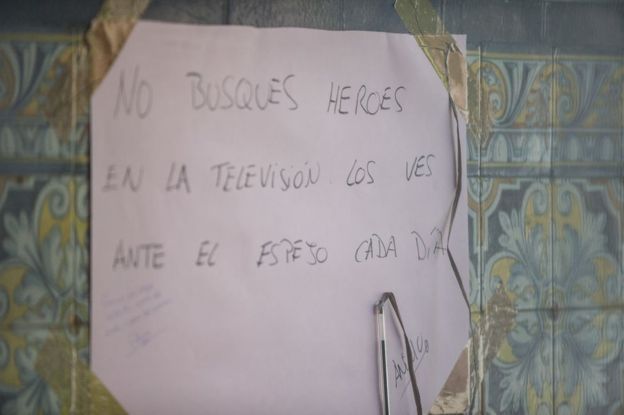 NO BUSQUES HEROES
EN LA TELEVISIÓN. LOS VES
ANTE EL ESPEJO CADA DÍA